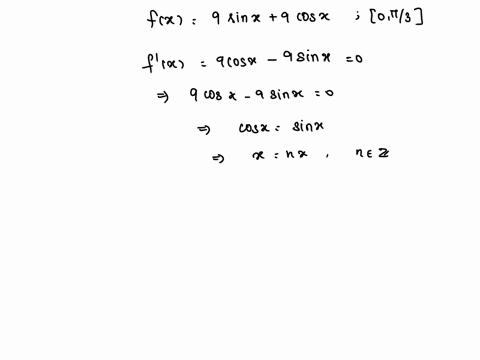 f(x) = 9 sinx + 9 cosx ; [0, π/3]
f'(x) = 9cosx - 9 sinx = 0
⇒ 9 cosx - 9 sinx = 0
⇒ cosx = sinx
⇒ x = nx , n ∈ ℤ